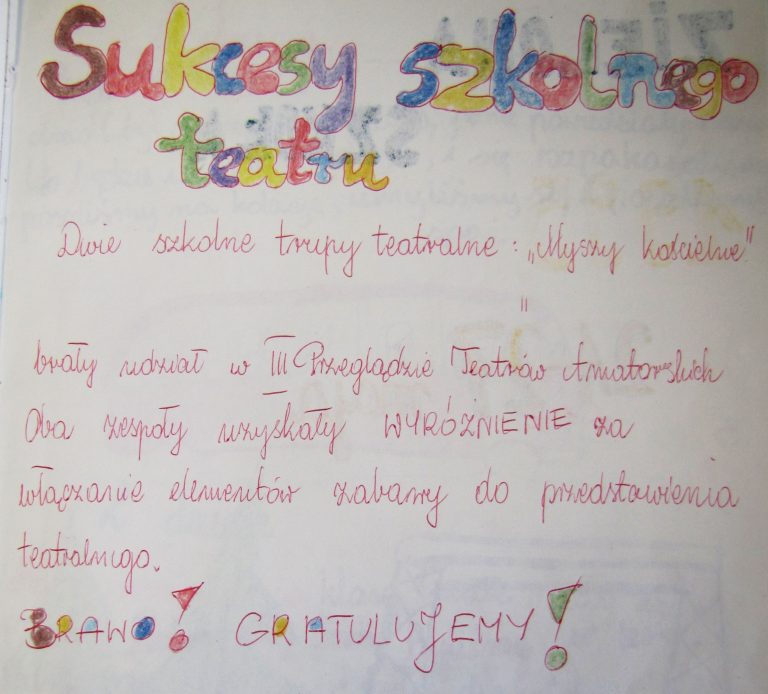 Sukcesy szkolnego
teatru
Dwie szkolne trupy teatralne: „Myszy kościelne"
"
brały udział w III Przeglądzie Teatrów Amatorskich
Oba zespoły uzyskały WYRÓŻNIENIE za
włączanie elementów zabawy do przedstawienia
teatralnego.
BRAWO! GRATULUJEMY!